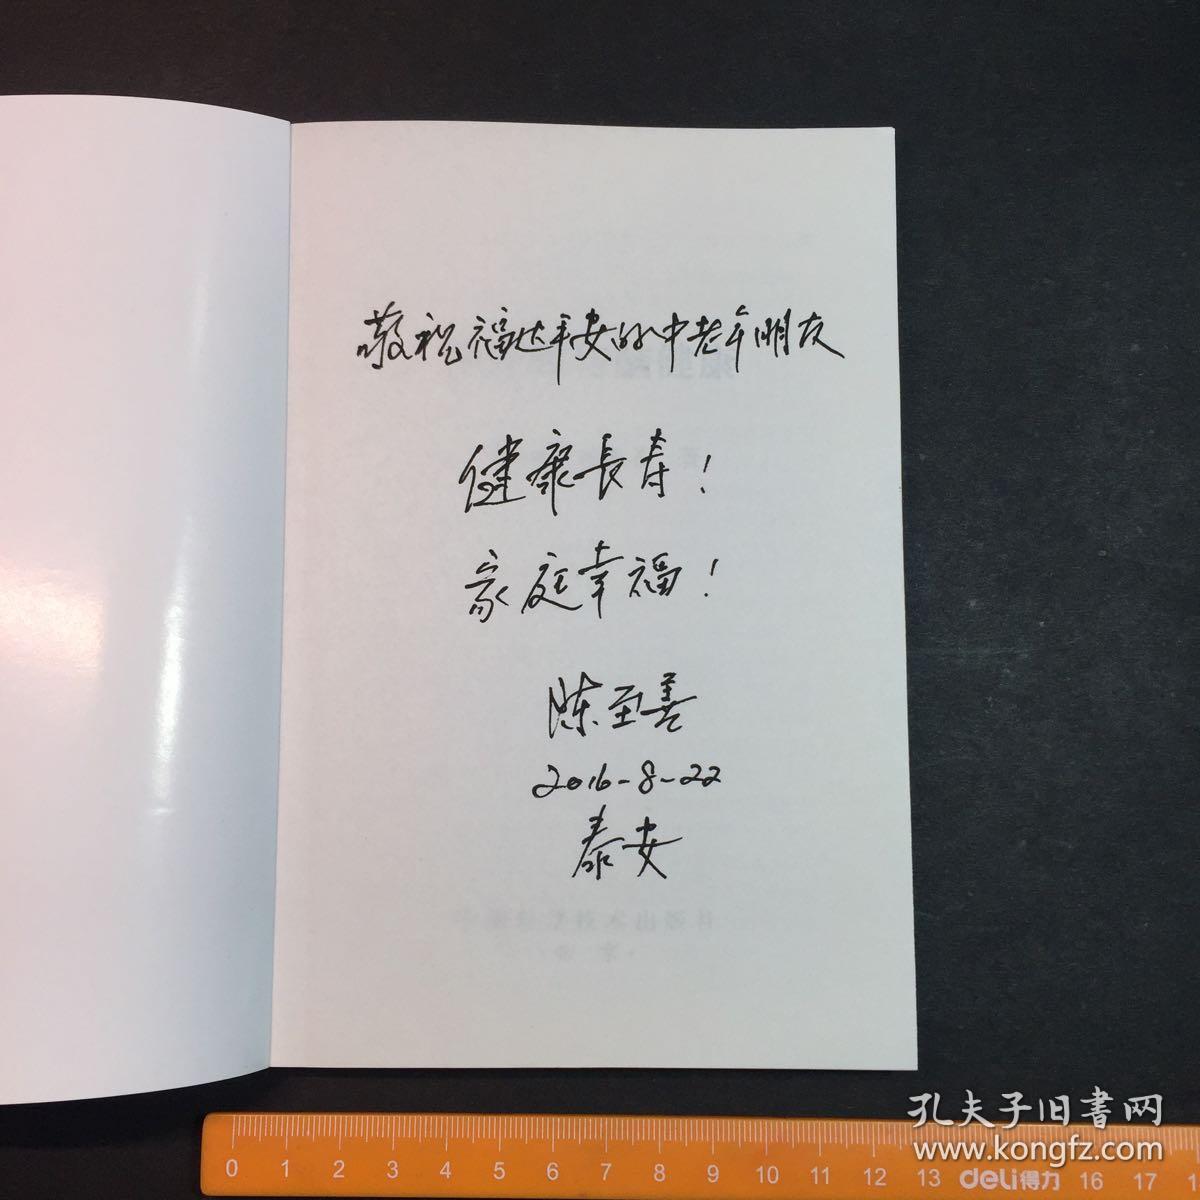 敬祝福达平安的中老年朋友
健康長寿!
家庭幸福!
陈至善
2016-8-22
泰安
孔夫子旧書网
www.kongfz.com
0 1 2 3 4 5 6 7 8 9 10 11 12 13 deli得力 16 17 1